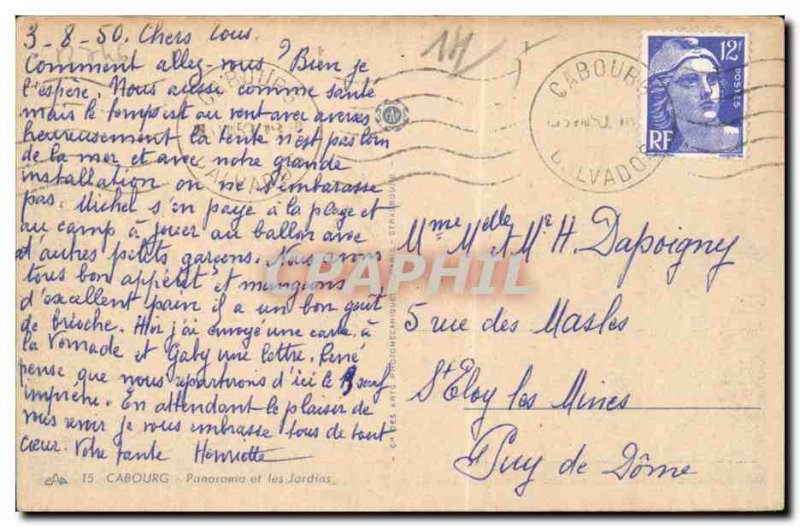 3-8-50. Chers tous.
Comment allez-vous? Bien je
l'espère. Nous aussi comme santé
mais le temps est au vent avec averses
heureusement la tente n'est pas loin
de la mer et avec notre grande
installation on ne s'embarasse
pas. Michel s'en paye à la plage et
au camp à jouer au ballon avec
d'autres petits garçons. Nous avons
tous bon appétit et mangeons
d'excellent pain il a un bon goût
de brioche. Hier j'ai envoyé une carte à
la Nomade et Gaby une lettre. René
pense que nous repartirons d'ici le 13 sauf
imprévu. En attendant le plaisir de
vous revoir je vous embrasse tous de tout
cœur. Votre tante Henriette
15 CABOURG - Panorama et les Jardins
CABOURG
CALVADOS
CABOURG
CALVADOS
12F
POSTES
RF
Mme Melle et Mr H. Dapoigny
5 rue des Masles
St Eloy les Mines
Puy de Dôme
CPAPHIL